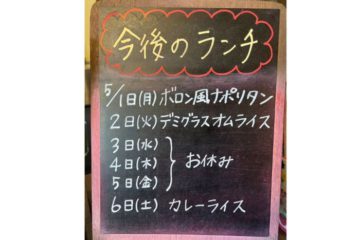 今後のランチ
5/1日(月)ボロン風ナポリタン
2日(火)デミグラスオムライス
3日(水)
4日(木) お休み
5日(金)
6日(土) カレーライス